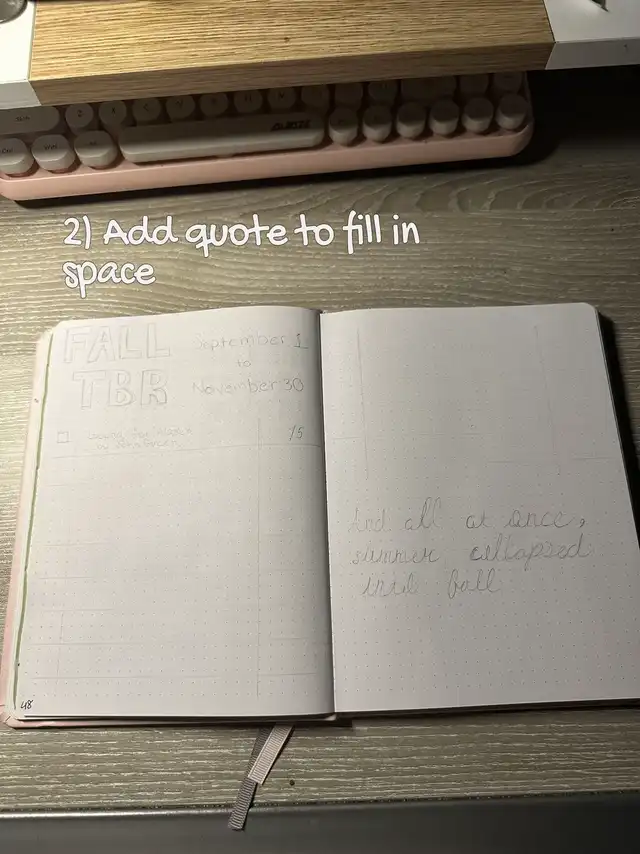 2) Add quote to fill in
space
FALL
TBR
September 1
to
November 30
15
And all at once,
summer collapsed
into fall
48